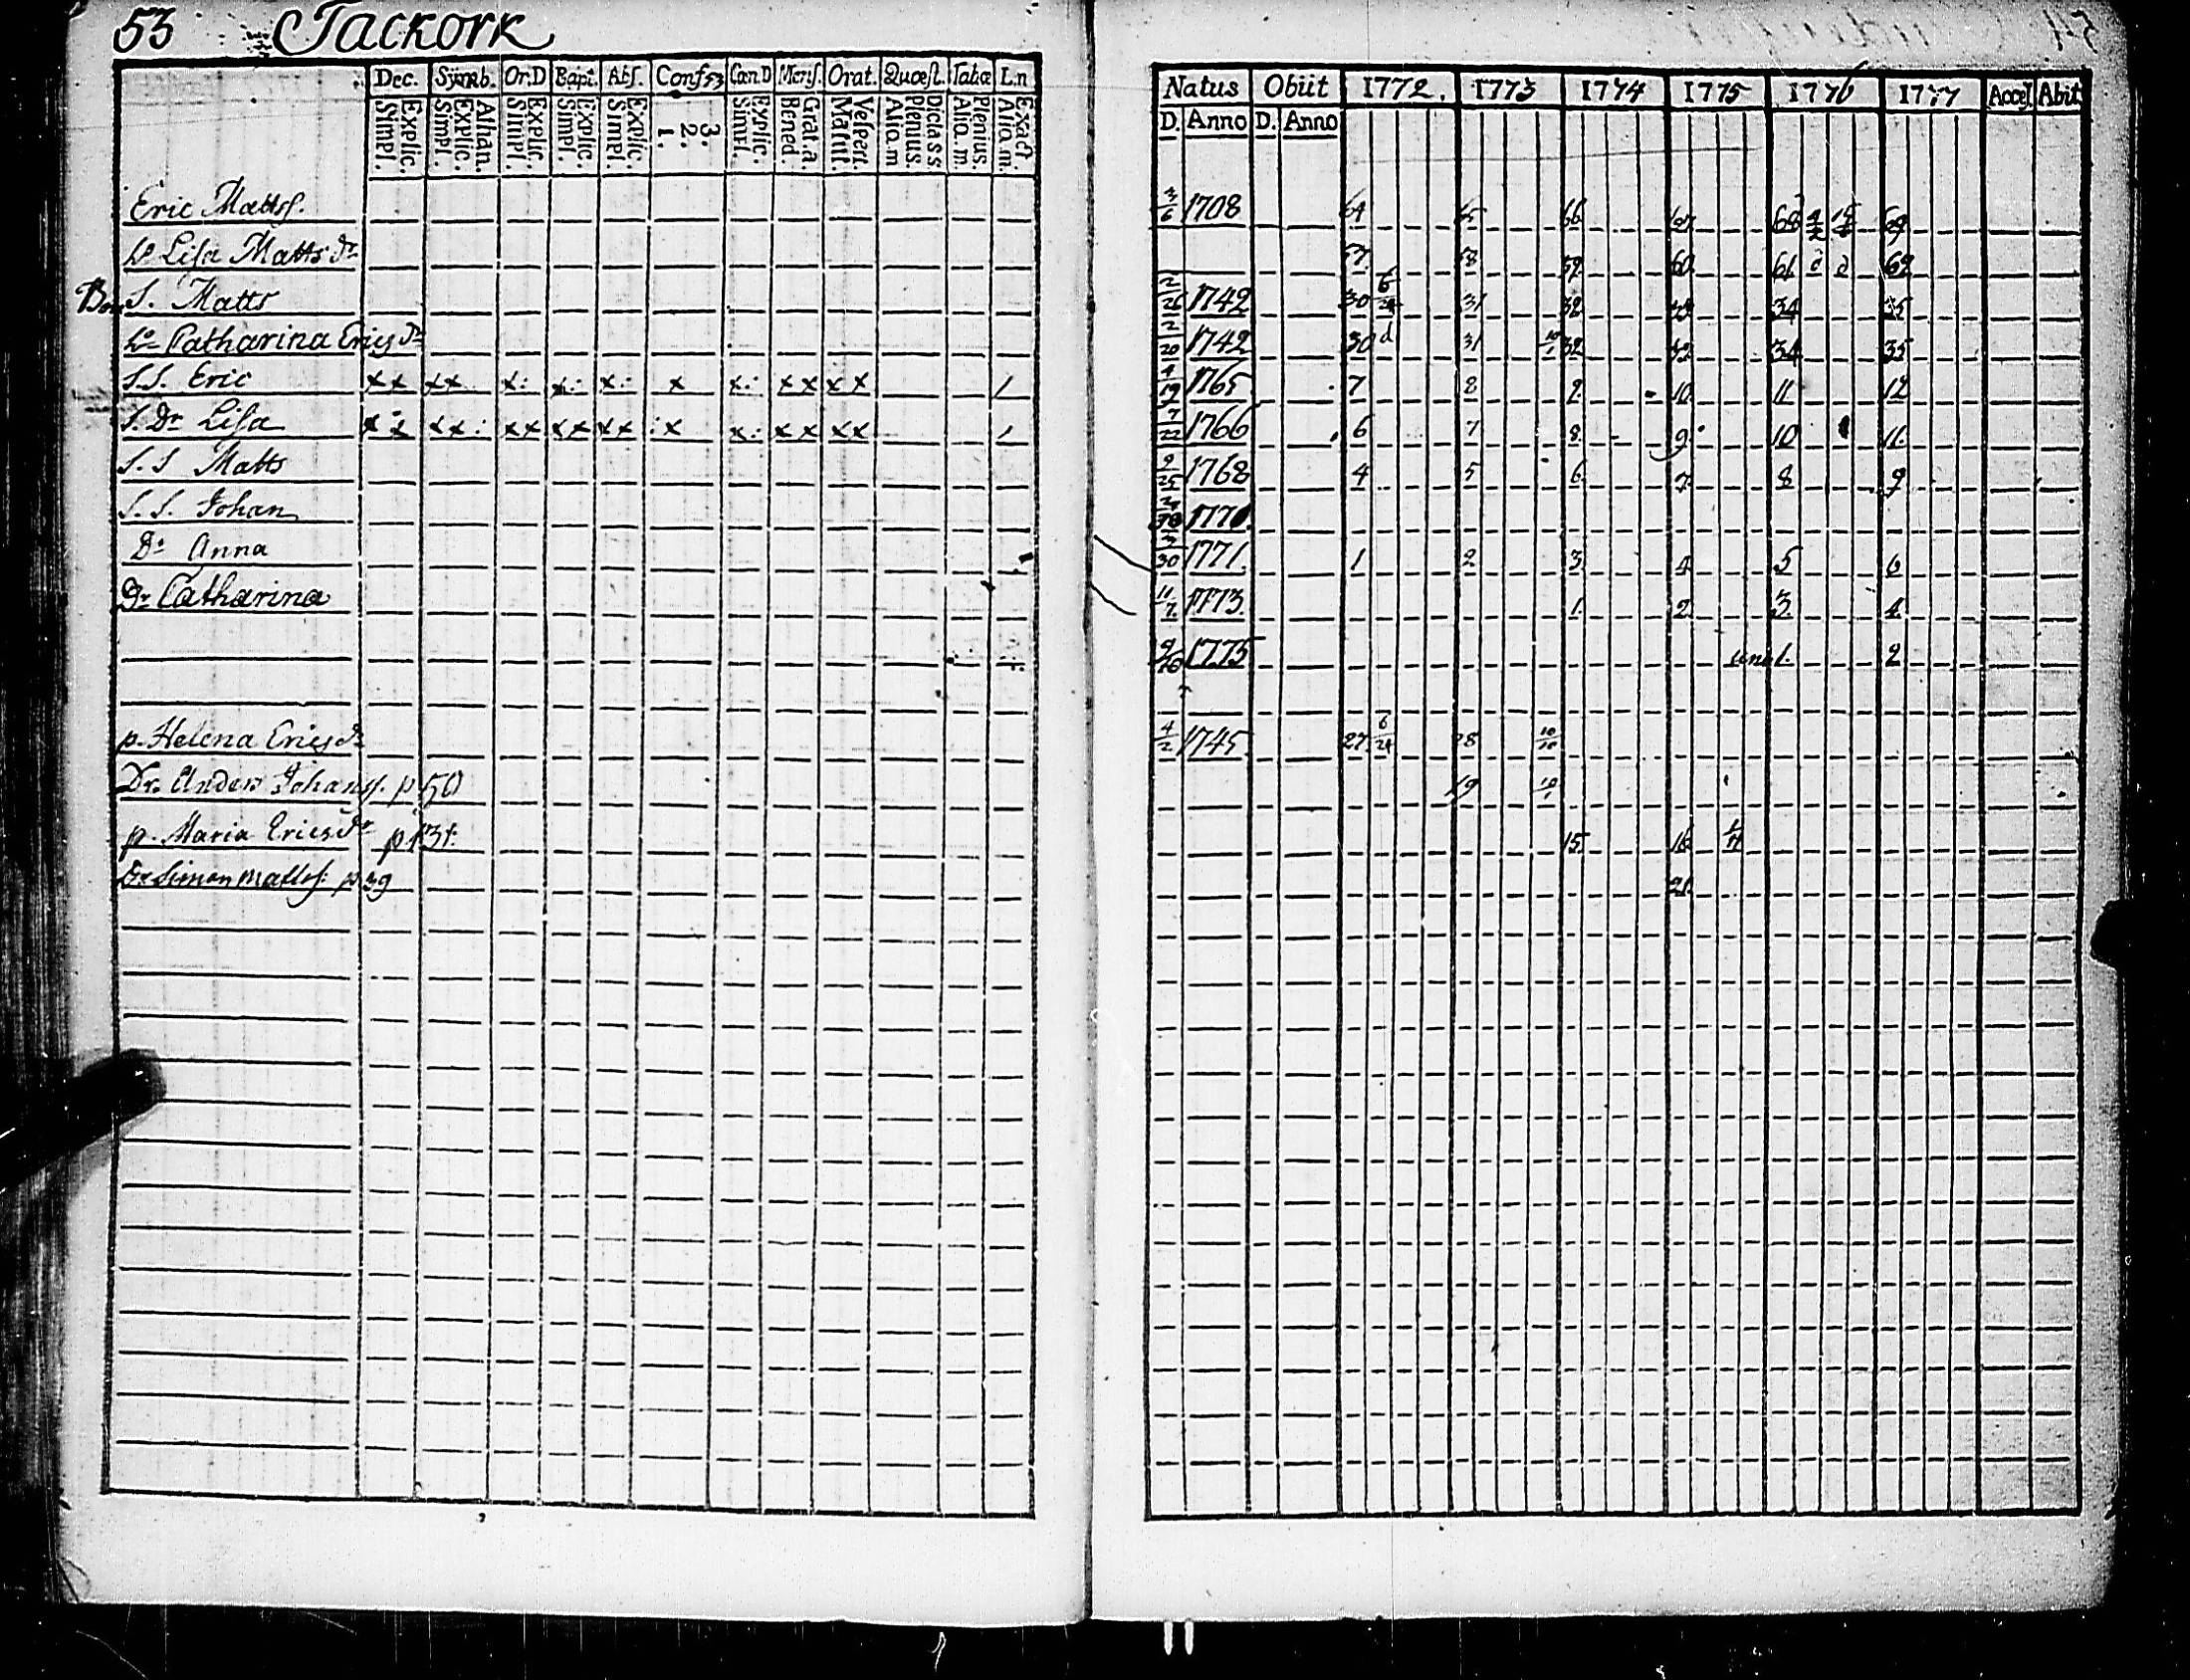 53 Tackork
Dec. Symb. Or.D Bapt. Abs. Conf. 53 Can D Mens. Orat. Quæst. Tabæ L.n
Explic. Simpl. Athan. Explic. Simpl. Explic. Simpl. Explic. Simpl. Explic. Simpl. 3. 2. 1. Explic. Simpl. Grat.a. Bened. Vespert. Matut. Dicta s s Plenius. Aliq.m Plenius. Aliq.m. Exact. Aliq.m.
Natus Obiit 1772. 1773 1774 1775 1776 1777 Acces. Abit
D. Anno D. Anno
Eric Matts. 3/6 1708 64 65 66 67 68 69
h. Lisa Matts dr 57 58 59 60 61 62
Bon S. Matts 2/26 1742 30 6/24 31 32 33 34 35
h. Catharina Erics dr 2/20 1742 30 d 31 32 33 34 35
S.S. Eric x x x x x: x: x: x x: x x x x / 4/19 1765 7 8 9 10 11 12
S. Dr Lisa x x x x: x x x x x x :x x: x x x x / 7/22 1766 6 7 8 9 10 11
S. S Matts 9/25 1768 4 5 6 7 8 9
S. S. Johan 1770
Dr Anna 1771 1 2 3 4 5 6
Dr Catharina 11/7 1773 1 2 3 4
1775 1. 2
p. Helena Erics dr 4/2 1745. 27 6/24 28 10/10
Dr. Anders Johanss. p 50 19
p. Maria Erics dr p 131. 15 16
Dr Simon Matts: p 39 21